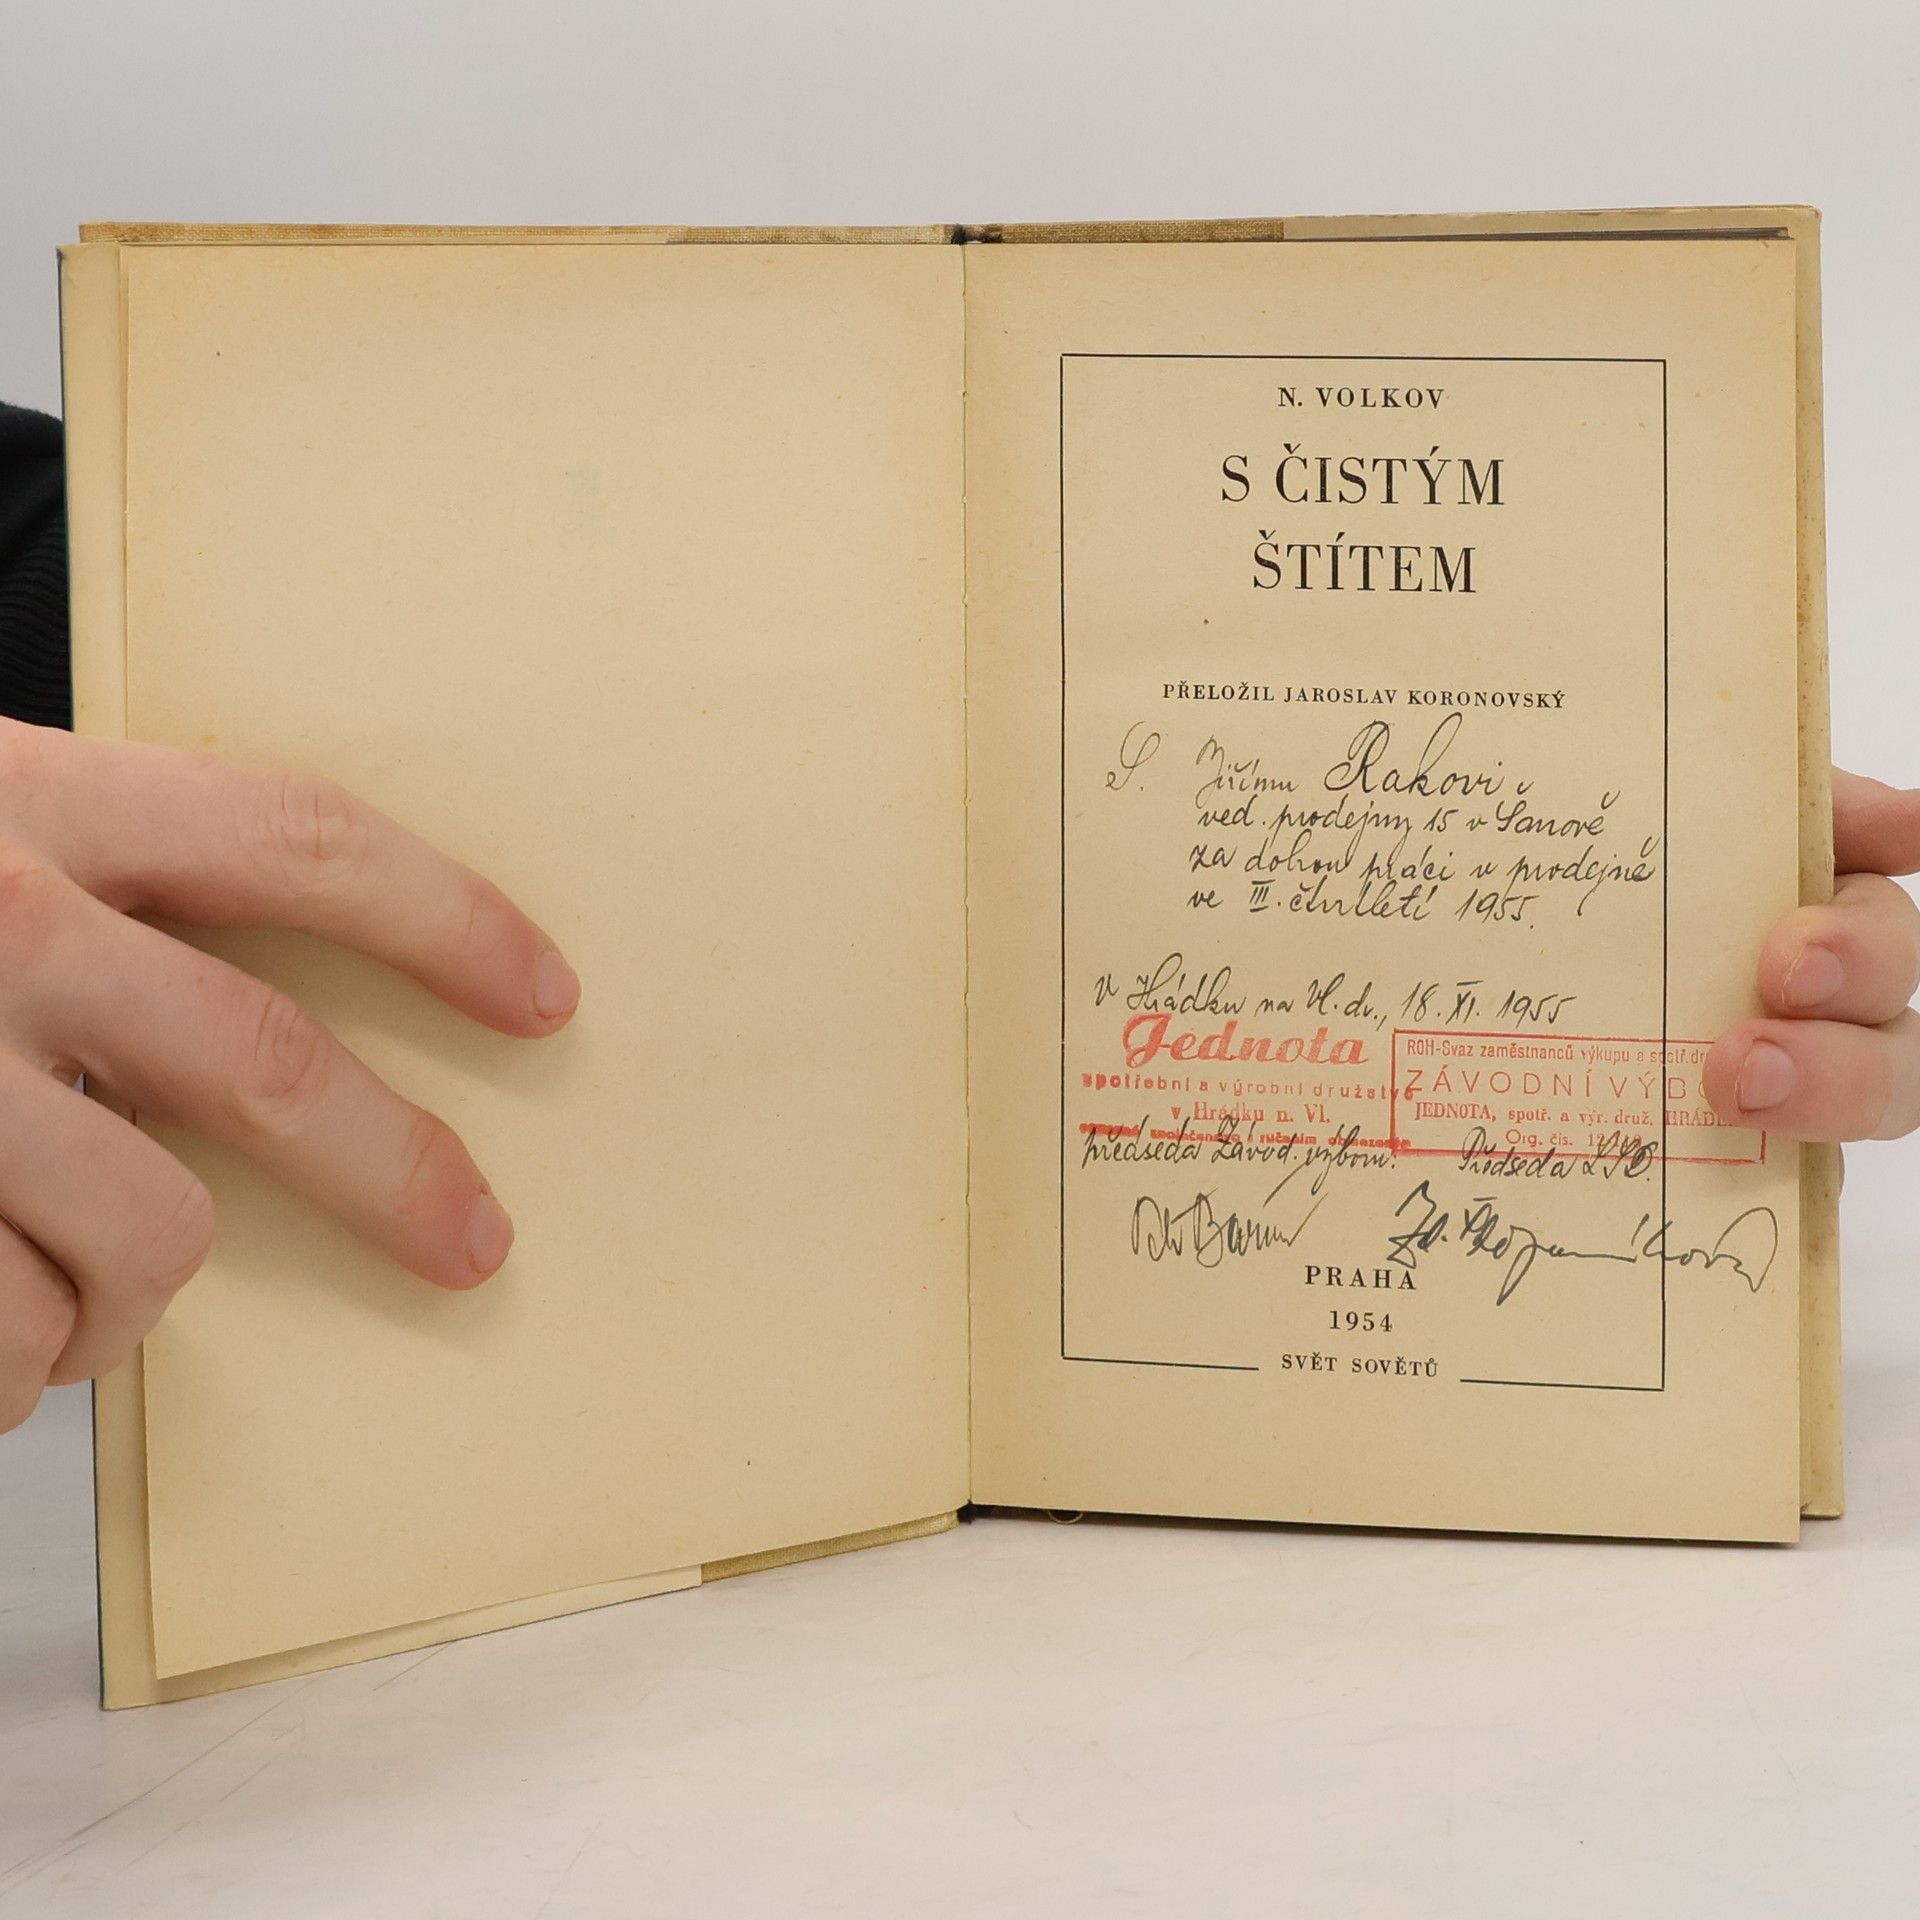 N. VOLKOV
S ČISTÝM
ŠTÍTEM
PŘELOŽIL JAROSLAV KORONOVSKÝ
S. Jiřímu Rakovi
ved. prodejny 15 v Šanově
za dobrou práci v prodejně
ve III. čtvrtletí 1955.
v Hrádku na Vl. dr., 18. XI. 1955
Jednota
spotřební a výrobní družstvo
v Hrádku n. Vl.
společenstvo s ručením obmezeným
ROH-Svaz zaměstnanců výkupu a spotř. dr
ZÁVODNÍ VÝBO
JEDNOTA, spotř. a výr. druž. HRÁDE
Org. čís.
předseda Závod. výboru: Předseda
PRAHA
1954
SVĚT SOVĚTŮ